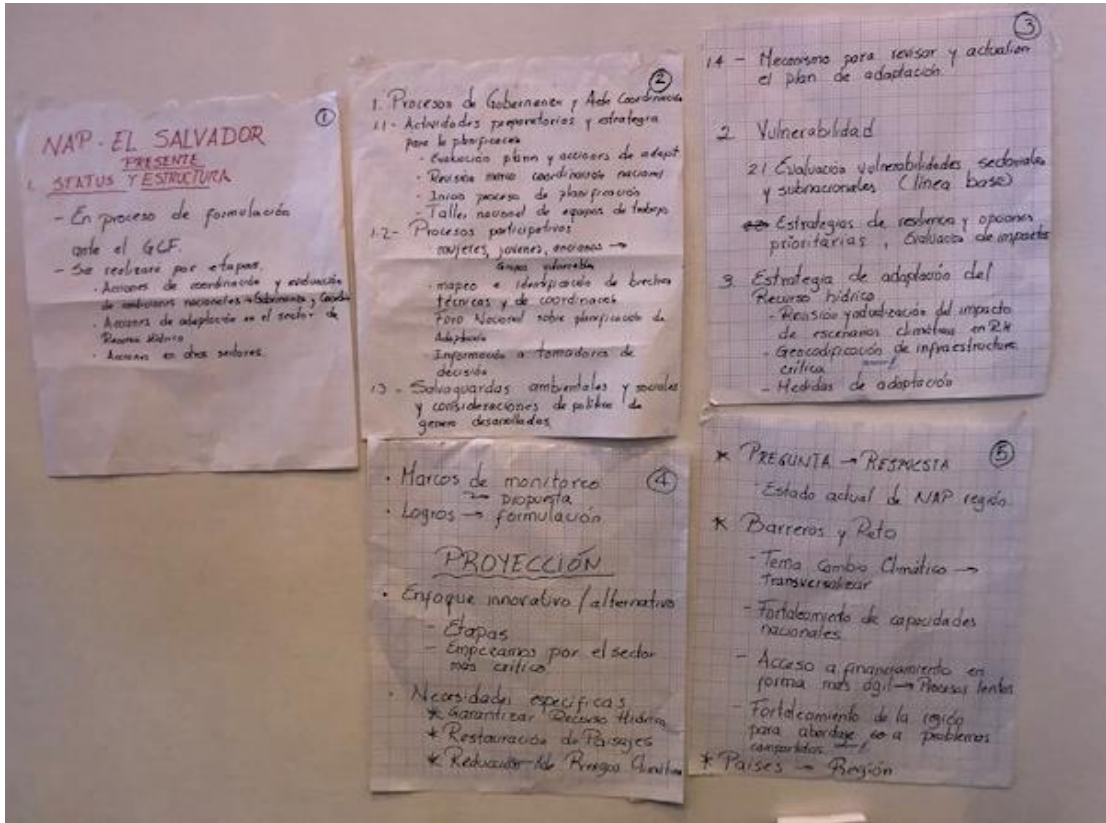 ①
NAP - EL SALVADOR
PRESENTE
1. STATUS Y ESTRUCTURA
- En proceso de formulación
ante el GCF.
- Se realizara por etapas.
• Acciones de coordinación y evaluación
de nacionales → Gobernanza y
• Acciones de adaptación en el sector de
Recurso Hídrico
• Acciones en otros sectores.
②
1. Procesos de Gobernanza y Coordinación
1.1 - Actividades preparatorias y estrategia
para la planificación
• Evaluación planes y acciones de adapt.
• Revisión marco coordinación nacional
• Inicio proceso de planificación
• Taller nacional de equipos de trabajo
1.2 - Procesos participativos
mujeres, jovenes, ancianos →
Grupos vulnerables
• mapeo e identificación de brechas
técnicas y de coordinación
Foro Nacional sobre planificación de
Adaptación
Información a tomadores de
decisión
1.3 - Salvaguardas ambientales y sociales
y consideraciones de politica de
genero desarrolladas.
③
1.4 - Mecanismo para revisar y actualizar
el plan de adaptación
2 Vulnerabilidad
2.1 Evaluación vulnerabilidades sectoriales
y subnacionales (línea base)
Estrategias de resiliencia y opciones
prioritarias, Evaluación de impactos
3. Estrategia de adaptación del
Recurso hídrico
- Revisión y actualización del impacto
de escenarios climáticos en RH
- Geocodificación de infraestructura
crítica
- Medidas de adaptación
④
• Marcos de monitoreo
→ propuesta
• Logros → formulación
PROYECCIÓN
• Enfoque innovativo / alternativo
- Etapas
- Empezamos por el sector
más crítico
• Necesidades específicas
* Garantizar Recurso Hídrico
* Restauración de Paisajes
* Reducción de Riesgos Climáticos
⑤
* PREGUNTA → RESPUESTA
- Estado actual de NAP región.
* Barreros y Reto
- Tema Cambio Climático →
Transversalizar
- Fortalecimiento de capacidades
nacionales.
- Acceso a financiamiento en
forma más ágil → Procesos lentos
- Fortalecimiento de la región
para abordaje a problemas
compartidos
* Países → Región